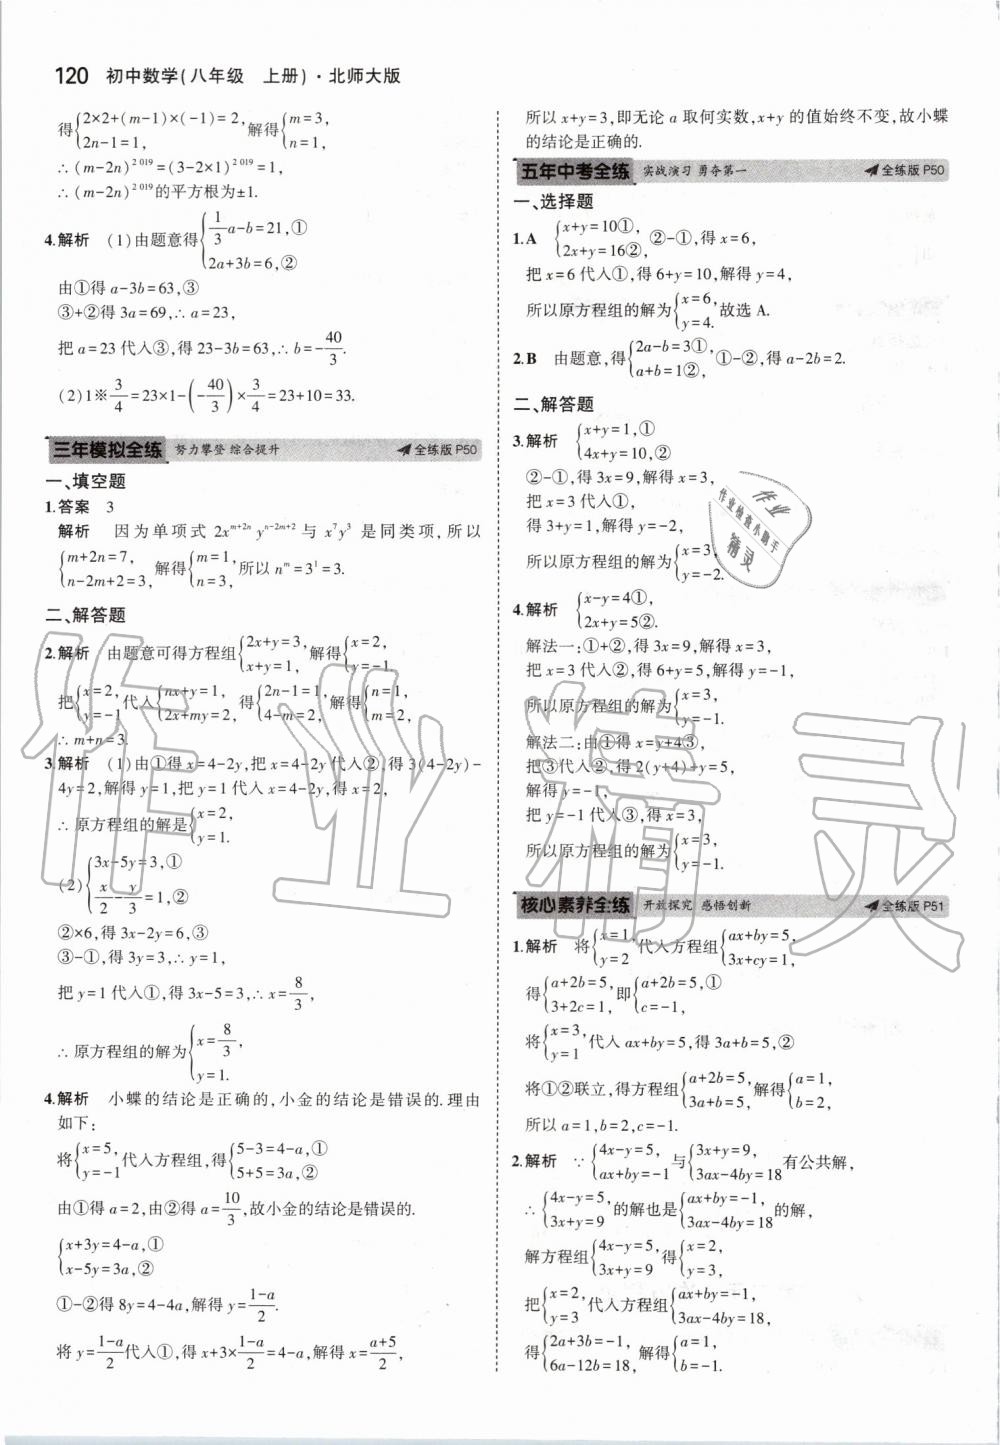 120 初中数学(八年级 上册)·北师大版
得{2×2+(m-1)×(-1)=2, 2n-1=1, 解得{m=3, n=1,
∴(m-2n)^2 019=(3-2×1)^2 019=1,
∴(m-2n)^2 019的平方根为±1.
4.解析 (1)由题意得{1/3a-b=21,① 2a+3b=6,②
由①得a-3b=63,③
③+②得3a=69,∴a=23,
把a=23代入③,得23-3b=63,∴b=-40/3.
(2)1※3/4=23×1-(-40/3)×3/4=23+10=33.
三年模拟全练 努力攀登 综合提升 全练版P50
一、填空题
1.答案 3
解析 因为单项式2x^(m+2n)y^(n-2m+2)与x^7y^3是同类项,所以
{m+2n=7, n-2m+2=3, 解得{m=1, n=3, 所以n^m=3^1=3.
二、解答题
2.解析 由题意可得方程组{2x+y=3, x+y=1, 解得{x=2, y=-1.
把{x=2, y=-1代入{nx+y=1, 2x+my=2, 得{2n-1=1, 4-m=2, 解得{n=1, m=2,
∴m+n=3.
3.解析 (1)由①得x=4-2y,把x=4-2y代入②,得3(4-2y)-
4y=2,解得y=1,把y=1代入x=4-2y,得x=2,
∴原方程组的解是{x=2, y=1.
(2){3x-5y=3,① x/2-y/3=1,②
②×6,得3x-2y=6,③
③-①,得3y=3,∴y=1,
把y=1代入①,得3x-5=3,∴x=8/3,
∴原方程组的解为{x=8/3, y=1.
4.解析 小蝶的结论是正确的,小金的结论是错误的.理由
如下:
将{x=5, y=-1代入方程组,得{5-3=4-a,① 5+5=3a,②
由①得a=2,由②得a=10/3,故小金的结论是错误的.
{x+3y=4-a,① x-5y=3a,②
①-②得8y=4-4a,解得y=(1-a)/2.
将y=(1-a)/2代入①,得x+3×(1-a)/2=4-a,解得x=(a+5)/2,
所以x+y=3,即无论a取何实数,x+y的值始终不变,故小蝶
的结论是正确的.
五年中考全练 实战演习 勇夺第一 全练版P50
一、选择题
1.A {x+y=10①, 2x+y=16②, ②-①,得x=6,
把x=6代入①,得6+y=10,解得y=4,
所以原方程组的解为{x=6, y=4. 故选A.
2.B 由题意,得{2a-b=3①, a+b=1②, ①-②,得a-2b=2.
二、解答题
3.解析 {x+y=1,① 4x+y=10,②
②-①,得3x=9,解得x=3,
把x=3代入①,
得3+y=1,解得y=-2,
所以原方程组的解为{x=3, y=-2.
4.解析 {x-y=4①, 2x+y=5②.
解法一:①+②,得3x=9,解得x=3,
把x=3代入②,得6+y=5,解得y=-1,
所以原方程组的解为{x=3, y=-1.
解法二:由①得x=y+4③,
把③代入②,得2(y+4)+y=5,
解得y=-1,
把y=-1代入③,得x=3,
所以原方程组的解为{x=3, y=-1.
核心素养全练 开放探究 感悟创新 全练版P51
1.解析 将{x=1, y=2代入方程组{ax+by=5, 3x+cy=1,
得{a+2b=5, 3+2c=1, 即{a+2b=5,① c=-1,
将{x=3, y=1代入ax+by=5,得3a+b=5,②
将①②联立,得方程组{a+2b=5, 3a+b=5, 解得{a=1, b=2,
所以a=1,b=2,c=-1.
2.解析 ∵{4x-y=5, ax+by=-1与{3x+y=9, 3ax-4by=18有公共解,
∴{4x-y=5, 3x+y=9的解也是{ax+by=-1, 3ax-4by=18的解,
解方程组{4x-y=5, 3x+y=9得{x=2, y=3,
把{x=2, y=3代入方程组{ax+by=-1, 3ax-4by=18,
得{2a+3b=-1, 6a-12b=18, 解得{a=1, b=-1.
作业
作业检查小助手
精灵
作业精灵